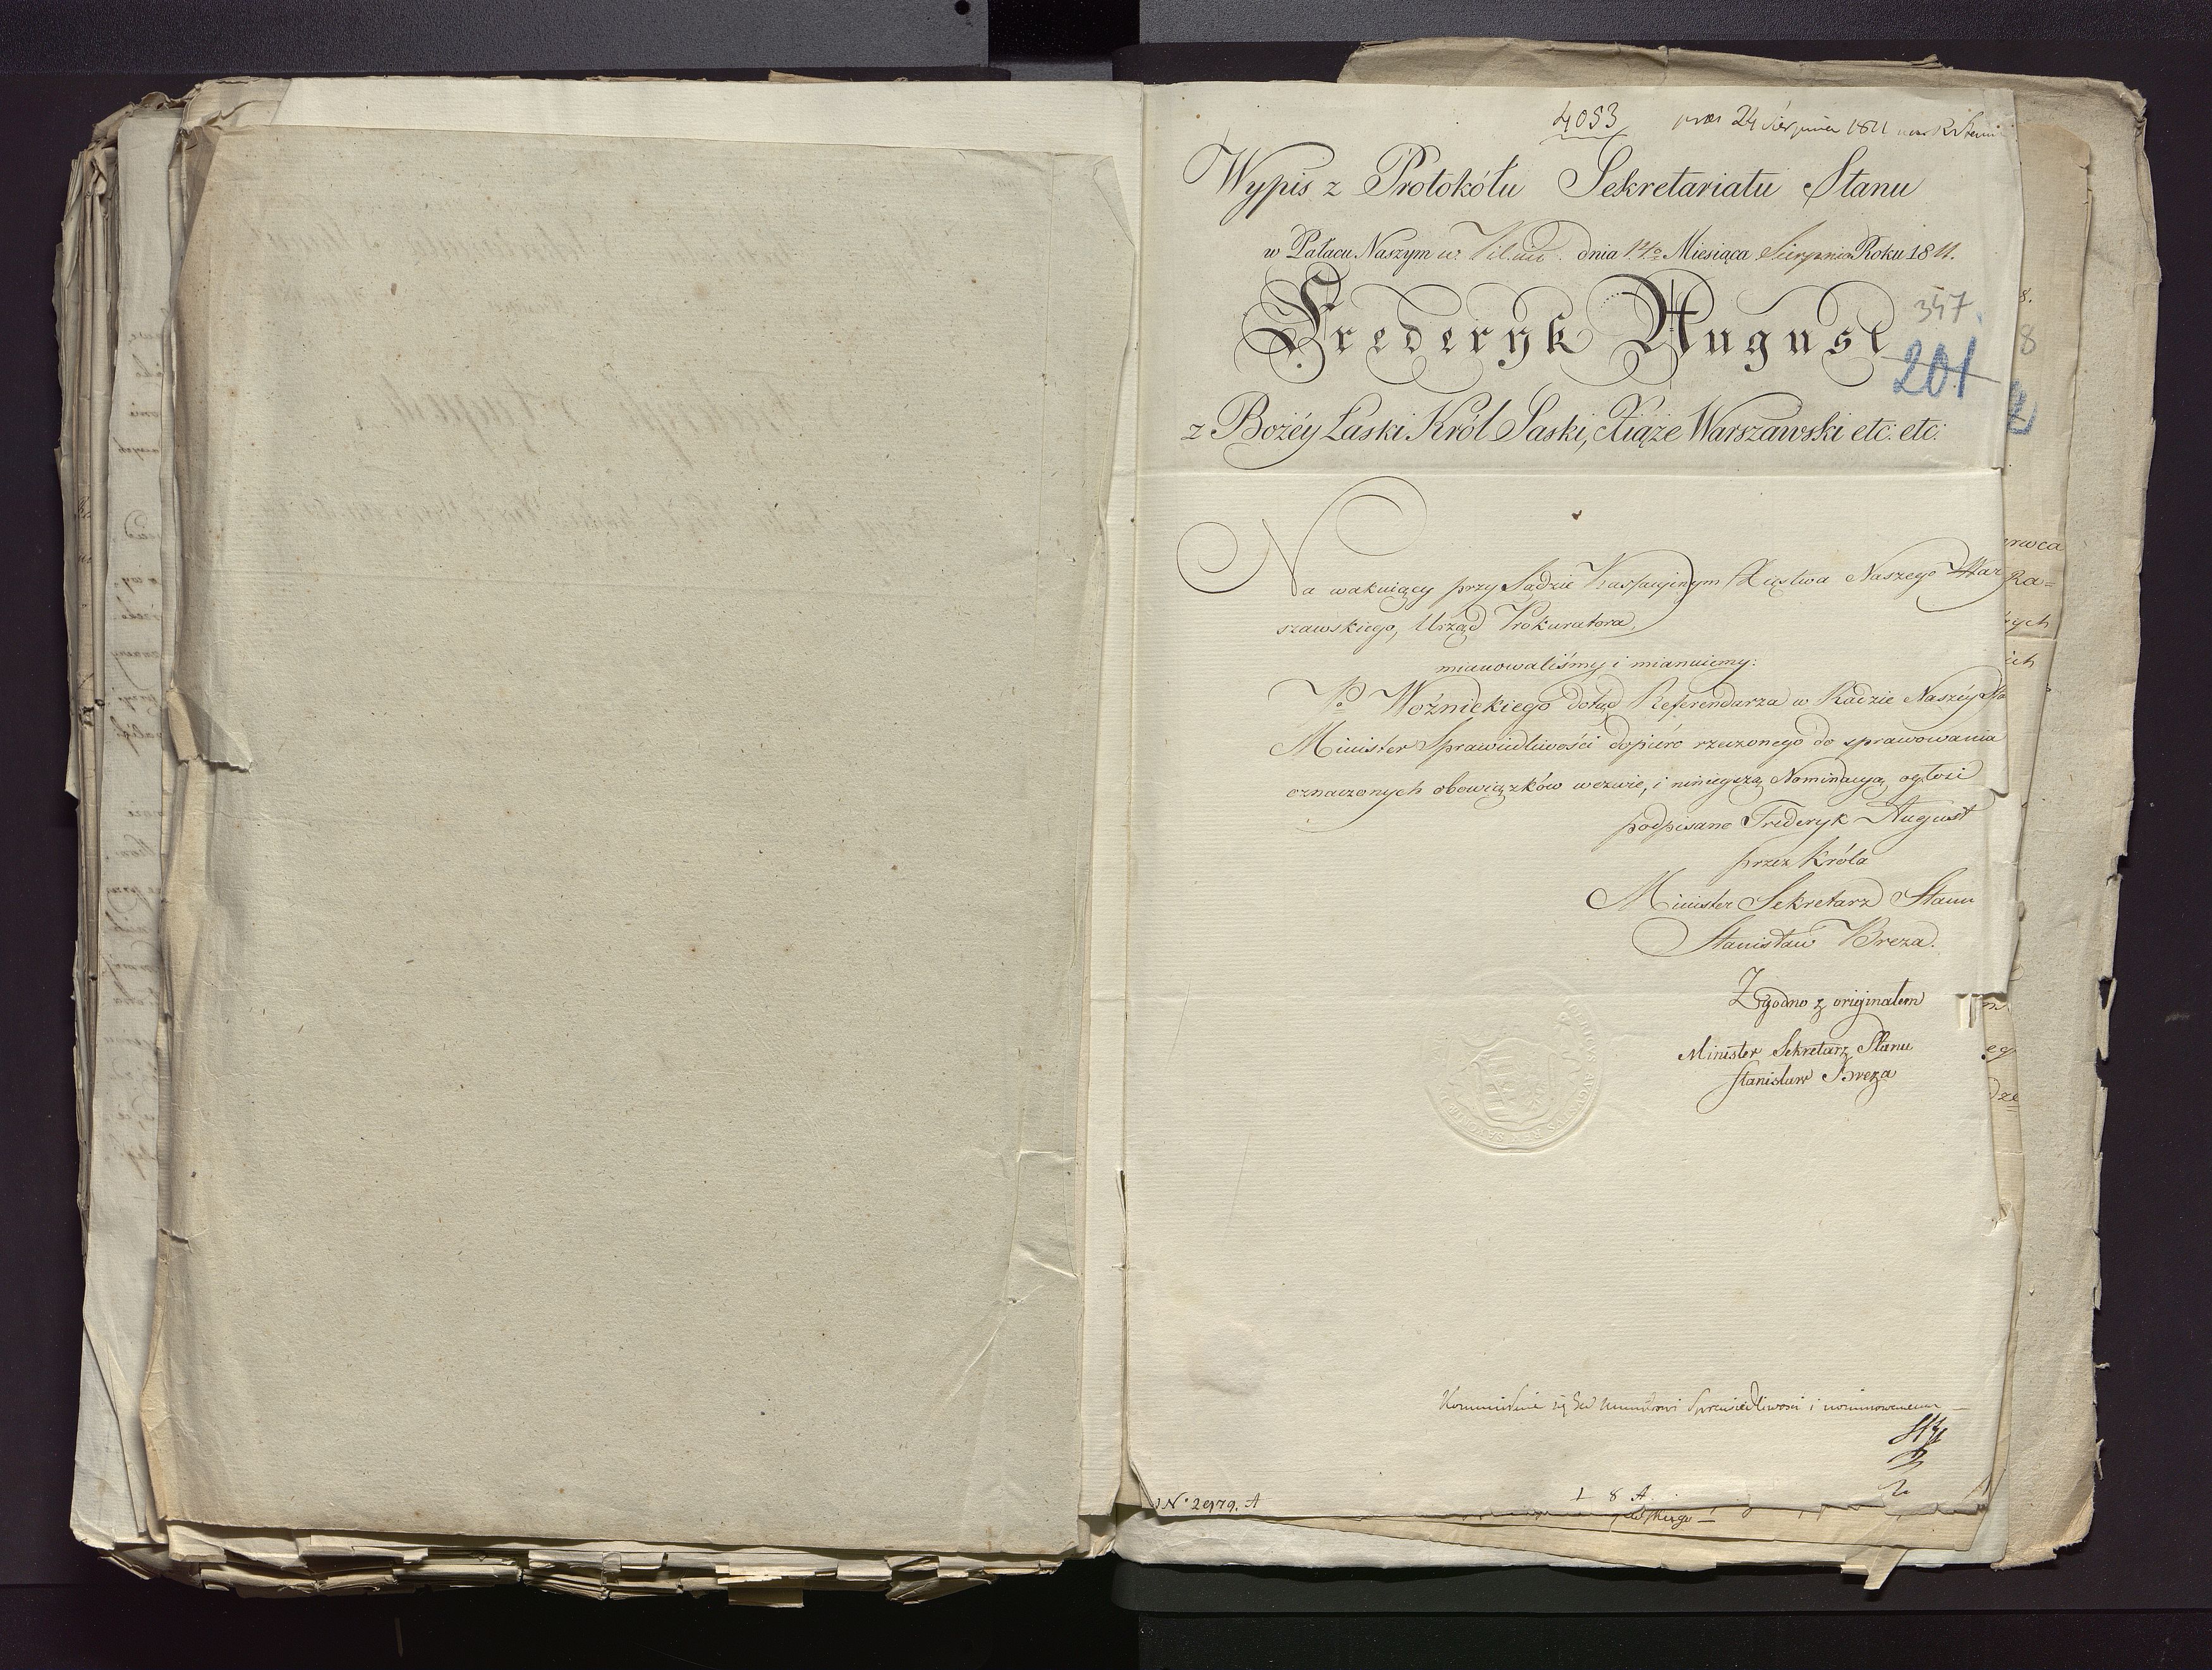 4053 prez 24 Sierpnia 1811
Wypis z Protokółu Sekretariatu Stanu
w Pałacu Naszym w. Pilnic. dnia 14º Miesiąca Sierpnia Roku 1811.
Fryderyk August
347.
201
z Bożéy Łaski Król Saski, Xiąże Warszawski etc: etc:
Na wakuiący przy Sądzie Kassacyinym Xięstwa Naszego War
szawskiego, Urząd Prokuratora,
mianowaliśmy i mianuiemy:
Pº Woźnickiego dotąd Referendarza w Radzie Naszéy Sta
Minister Sprawiedliwości dopiéro rzeczonego do sprawowania
oznaczonych obowiązków wezwie, i ninieyszą Nominacyą ogłosi
podpisano Frideryk August
przez Króla
Minister Sekretarz Stanu
Stanisław Breza.
Zgodno z originałem
Minister Sekretarz Stanu
Stanisław Breza
Sprawiedliwości i nominowanemu
N° 2979. A
1 8 A